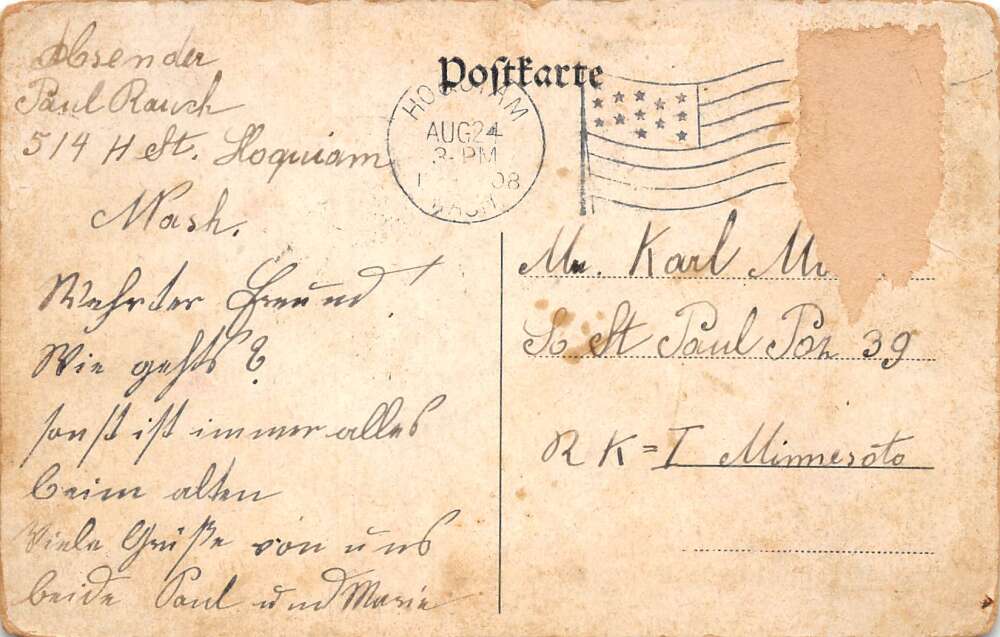 Absender
Paul Rauch
514 H St. Hoquiam
Wash.
Postkarte
HOQUIAM
AUG 24
3-PM
08
WASH.
Wehrter Freund
Wie gehts?
sonst ist immer alles
beim alten
Viele Grüße von uns
beide Paul und Marie
Mr. Karl
So St Paul Box 39
R K = I Minnesoto